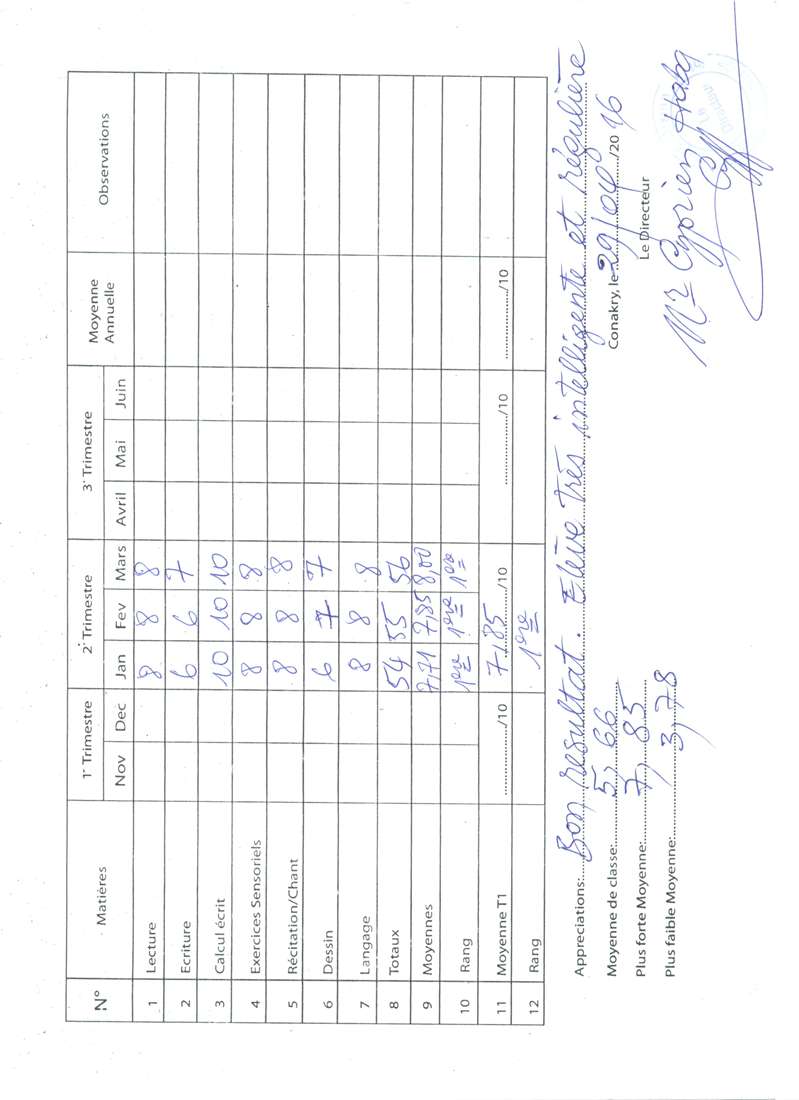 N° Matières 1er Trimestre 2e Trimestre 3e Trimestre Moyenne Annuelle Observations
Nov Dec Jan Fev Mars Avril Mai Juin
1 Lecture 8 8 8
2 Ecriture 6 6 7
3 Calcul écrit 10 10 10
4 Exercices Sensoriels 8 8 8
5 Récitation/Chant 8 8 8
6 Dessin 6 7 7
7 Langage 8 8 8
8 Totaux 54 55 56
9 Moyennes 7,71 7,85 8,00
10 Rang 1ere 1ere 1ere
11 Moyenne T1 ............../10 7,85/10 ............../10 ............../10
12 Rang 1ere
Appreciations: Bon resultat. Elève très intelligente et régulière
Moyenne de classe: 5,66 Conakry, le 29/04/2016
Plus forte Moyenne: 7,85 Le Directeur
Plus faible Moyenne: 3,78
Mr Cyprien Haba